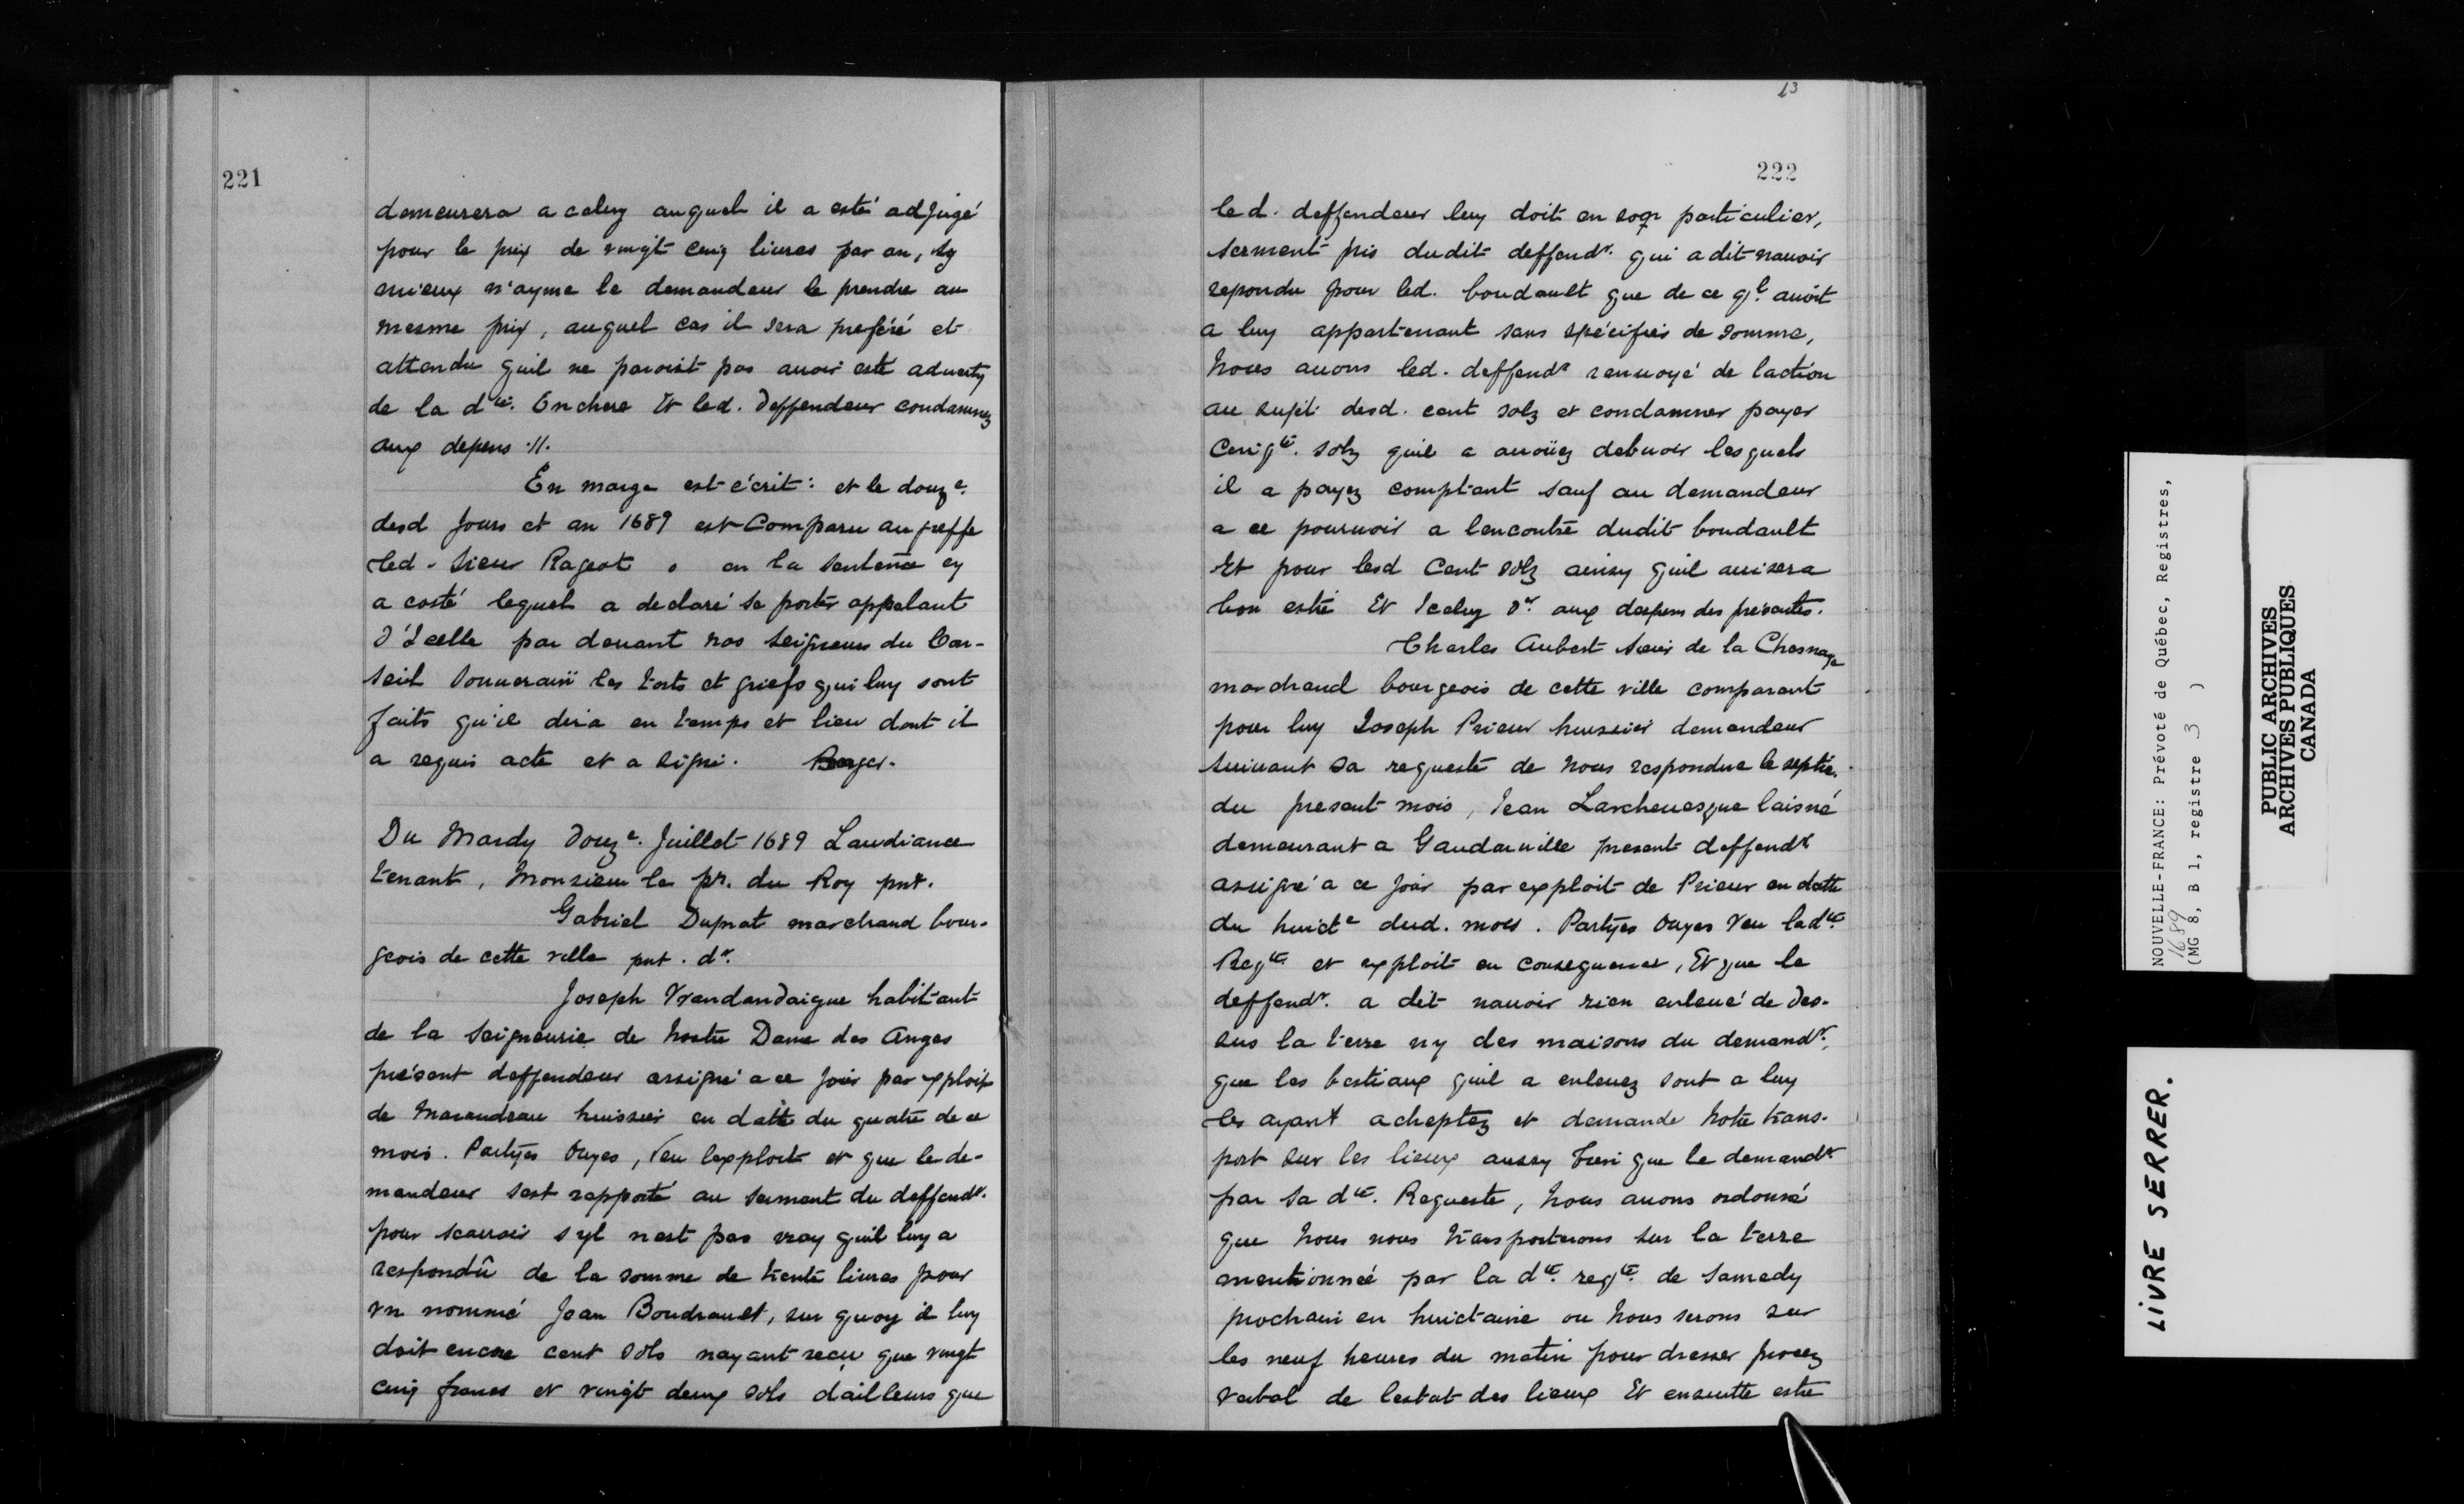 221
demeurera a celuy auquel il a esté adjugé
pour le prix de vingt cinq liures par an, sy
mieux n'ayme le demandeur le prendre au
mesme prix, auquel cas il sera preféré et
attendu quil ne paroist pas auoir esté aduerty
de la dte. Enchere Et led. deffendeur condamnez
aux depens .//.
En marge est écrit : et le douze.
desd Jours et an 1689 est Comparu au greffe
led. sieur Rageot o en la sentence cy
a costé lequel a declaré se porter appelant
d'Icelle par deuant nos seigneurs du Con-
seil Souuerain les torts et griefs qui luy sont
faits qu'il dira en temps et lieu dont il
a requis acte et a signé.
Du Mardy douze. Juillet 1689 Laudiance
tenant, Monsieur le pr. du Roy pnt.
Gabriel Duprat marchand bour-
geois de cette ville pnt. dr.
Joseph Vrandandaigue habitant
de la seigneurie de Nostre Dame des Anges
présent deffendeur assigné a ce jour par exploit
de Marandeau huissier en datte du quatre de ce
mois. Partyes Ouyes, Veu lexploit et que le de-
mandeur sest rapporté au serment du deffendr.
pour scauoir syl nest pas vray quil luy a
respondû de la somme de trente liures pour
vn nommé Jean Boudrault, sur quoy il luy
doit encore cent sols nayant recu que vingt
cinq francs et vingt deux sols dailleurs que
13
222
led. deffendeur luy doit en son particulier,
serment pris dudit deffendr. qui a dit nauoir
repondu pour led. boudault que de ce ql. auoit
a luy appartenant sans spécifier de somme,
Nous auons led. deffendr renuoyé de laction
au sujet desd. cent solz et condamner payer
Cinqte. solz quil a auoüez debuoir lesquels
il a payez comptant sauf au demandeur
a ce pouruoir a lencontre dudit boudault
Et pour lesd Cent solz ainsy quil auisera
bon estre Et Iceluy dr. aux despens des présentes.
Charles Aubert sieur de la Chesnaye
marchand bourgeois de cette ville comparant
pour luy Joseph Prieur huissier demandeur
suiuant sa requeste de Nous respondue le septie.
du present mois, Jean Larcheuesque laisné
demeurant a Gaudarville present deffendr
assigné a ce jour par exploit de Prieur en datte
du huicte dud. mois. Partyes Ouyes Veu ladte.
Reqte. et exploit en consequence, Et que le
deffendr. a dit nauoir rien enleué de des-
sus la terre ny des maisons du demandr.,
que les bestiaux quil a enleuez sont a luy
les ayant acheptez et demande notre trans-
port sur les lieux aussy bien que le demandr
par sa dte. Requeste, Nous auons ordonné
que Nous nous transporterons sur la terre
mentionnée par la dte. reqte. de Samedy
prochain en huictaine ou Nous serons sur
les neuf heures du matin pour dresser procez
verbal de lestat des lieux Et ensuitte estre
NOUVELLE-FRANCE: Prévoté de Québec, Registres,
1689
(MG 8, B 1, registre 3 )
PUBLIC ARCHIVES
ARCHIVES PUBLIQUES
CANADA
LIVRE SERRER.